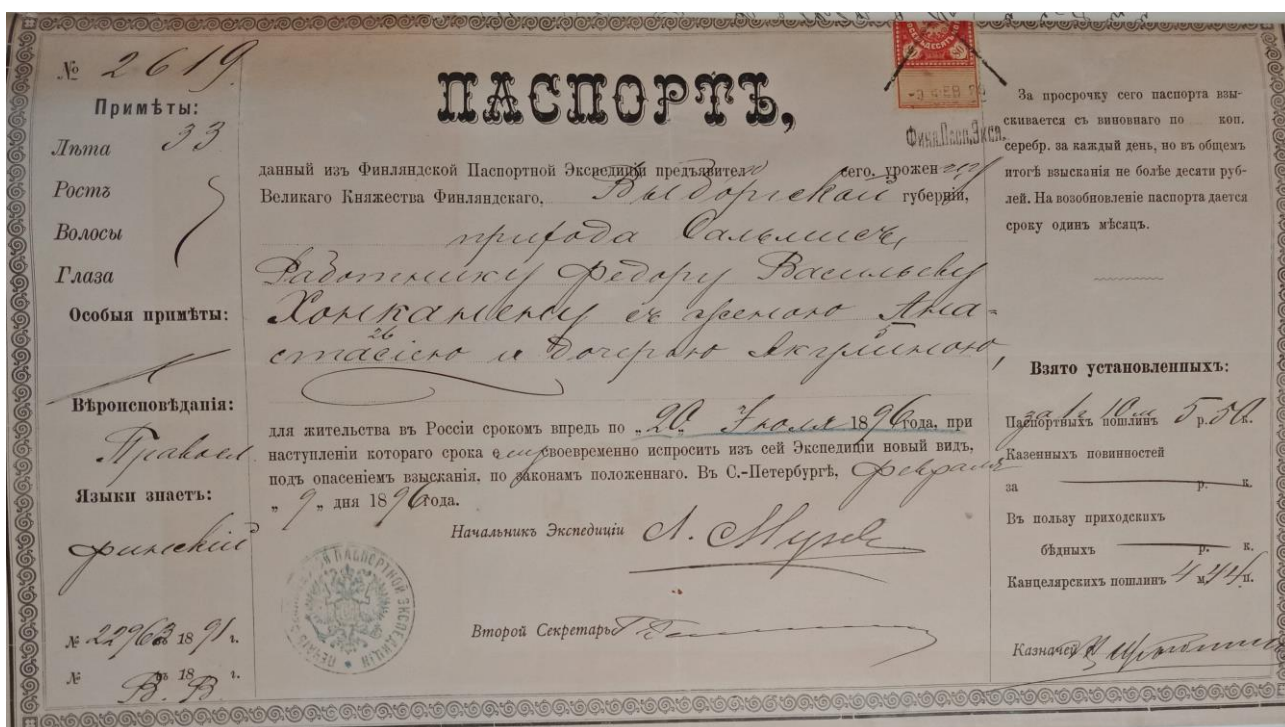 № 2619.
Примѣты:
Лѣта 33
Ростъ
Волосы
Глаза
Особыя примѣты:
Вѣроисповѣданія:
Правосл
Языки знаетъ:
финскій
№ 22963 18 91 г.
№ 18 г.
В. В
ПАСПОРТЪ,
данный изъ Финляндской Паспортной Экспедиціи предъявител сего, урожен
Великаго Княжества Финляндскаго, Выборгской губерніи,
прихода Сальмисъ,
Работнику Федору Васильеву
Хонканену съ женою Ана-
26 5
стасіею и дочерью Акулиною,
для жительства въ Россіи срокомъ впредь по „20 Іюля 1896 года, при
наступленіи котораго срока своевременно испросить изъ сей Экспедиціи новый видъ,
подъ опасеніемъ взысканія, по законамъ положеннаго. Въ С.-Петербургѣ, Февраля
„ 9 „ дня 1896 года.
Начальникъ Экспедиціи
Второй Секретарь
ПЕЧАТЬ ПАСПОРТНОЙ ЭКСПЕДИЦІИ
80 80
-9 ФЕВ 96
Финл.Пасп.Эксп.
За просрочку сего паспорта взы-
скивается съ виновнаго по коп.
серебр. за каждый день, но въ общемъ
итогѣ взысканія не болѣе десяти руб-
лей. На возобновленіе паспорта дается
сроку одинъ мѣсяцъ.
Взято установленныхъ:
Паспортныхъ пошлинъ 5 р. 50 к.
Казенныхъ повинностей
за р. к.
Въ пользу приходскихъ
бѣдныхъ р. к.
Канцелярскихъ пошлинъ 4 м. 44 п.
Казначей